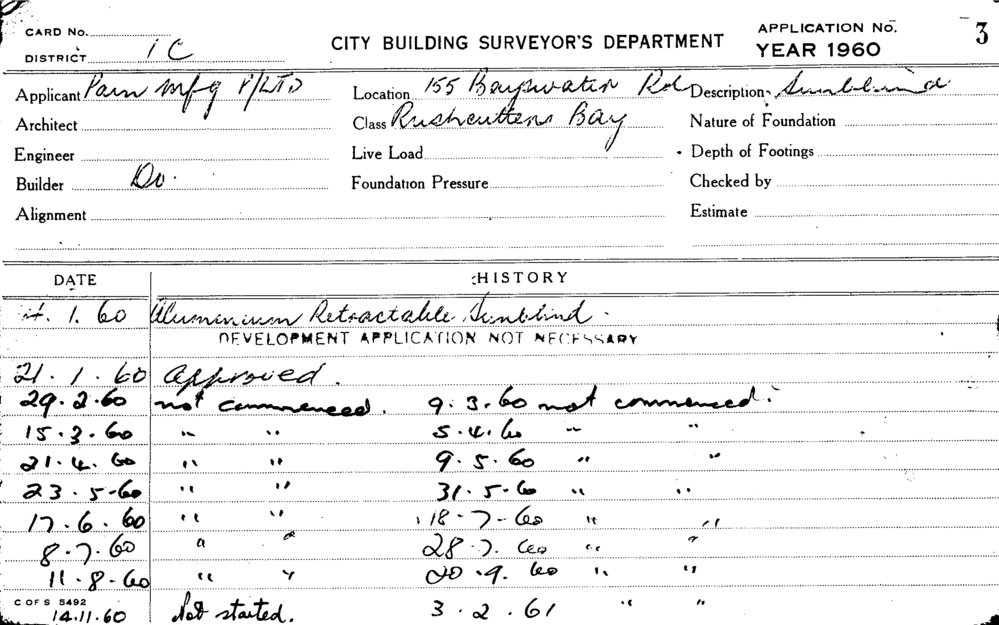 CARD No.
DISTRICT 1C
CITY BUILDING SURVEYOR'S DEPARTMENT
APPLICATION No. 3
YEAR 1960
Applicant Parn Mfg P/LTD
Location 155 Bayswater Rd
Description Sunblind
Architect
Class Rushcutters Bay
Nature of Foundation
Engineer
Live Load
Depth of Footings
Builder Do.
Foundation Pressure
Checked by
Alignment
Estimate
DATE HISTORY
1. 60 Aluminium Retractable Sunblind.
DEVELOPMENT APPLICATION NOT NECESSARY
21. 1. 60 Approved.
29. 2. 60 not commenced. 9. 3. 60 not commenced.
15. 3. 60 " " 5. 4. 60 " "
21. 4. 60 " " 9. 5. 60 " "
23. 5. 60 " " 31. 5. 60 " "
17. 6. 60 " " 18. 7. 60 " "
8. 7. 60 " " 28. 7. 60 " "
11. 8. 60 " " 20. 9. 60 " "
C OF S 5492
14.11.60 Not started. 3. 2. 61 " "